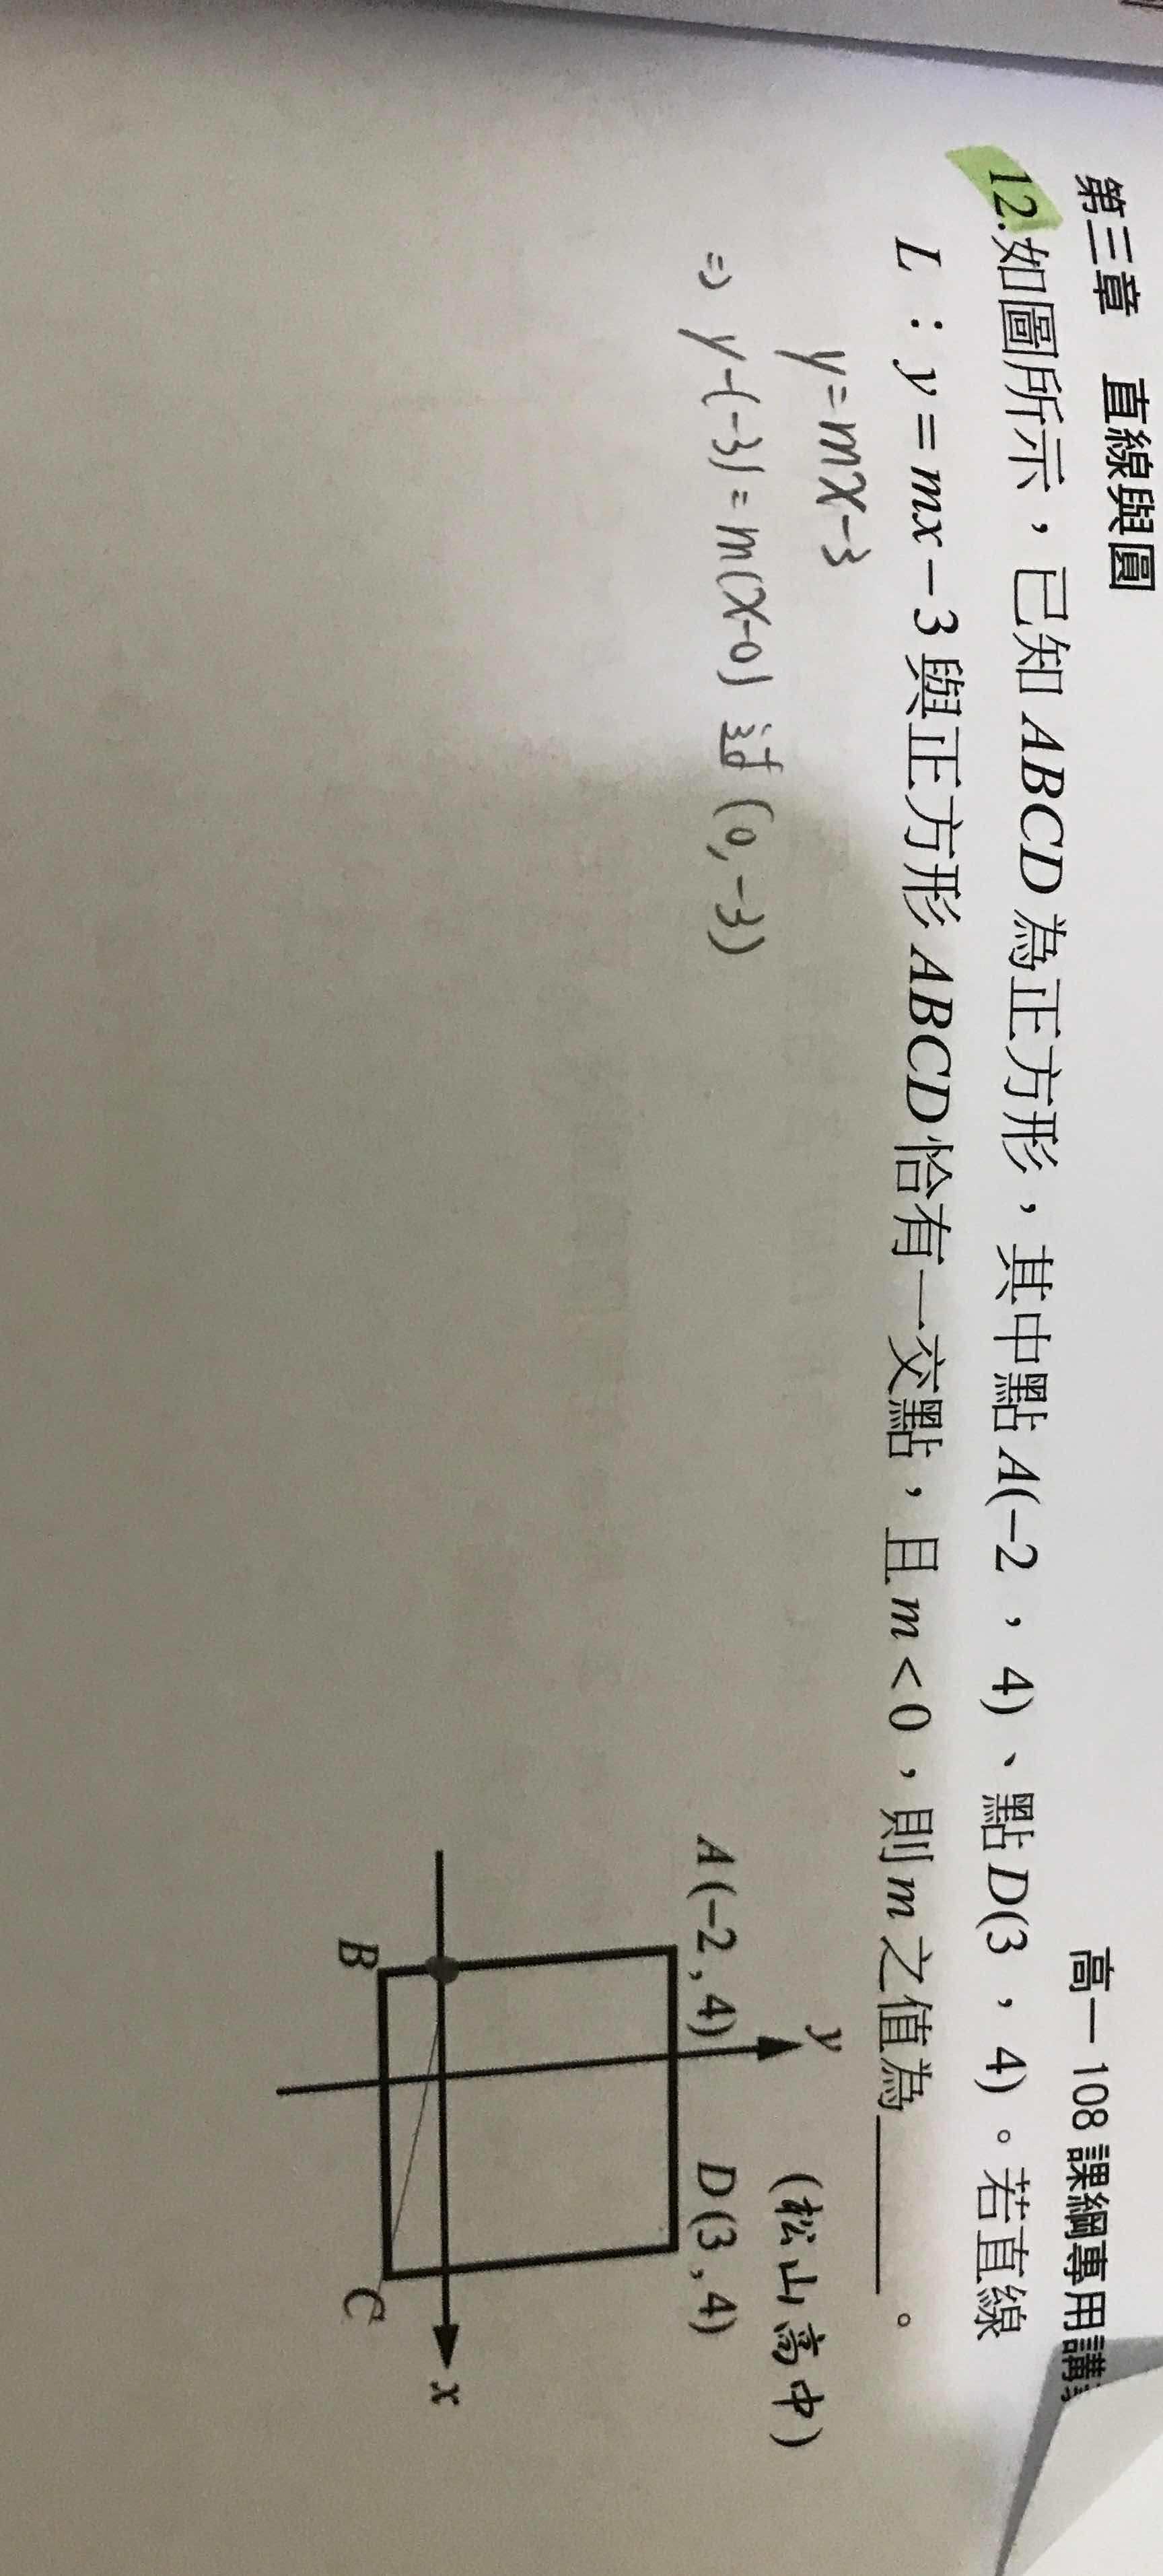 第三章 直線與圓
高一 108 課綱專用講
12.如圖所示，已知 ABCD 為正方形，其中點 A(−2，4)、點 D(3，4)。若直線
L：y=mx−3 與正方形 ABCD 恰有一交點，且 m<0，則 m 之值為＿＿＿＿。
(松山高中)
y=mx-3
⇒ y-(-3)=m(x-0) 过 (0,-3)
y
A(−2,4) D(3,4)
x
B C